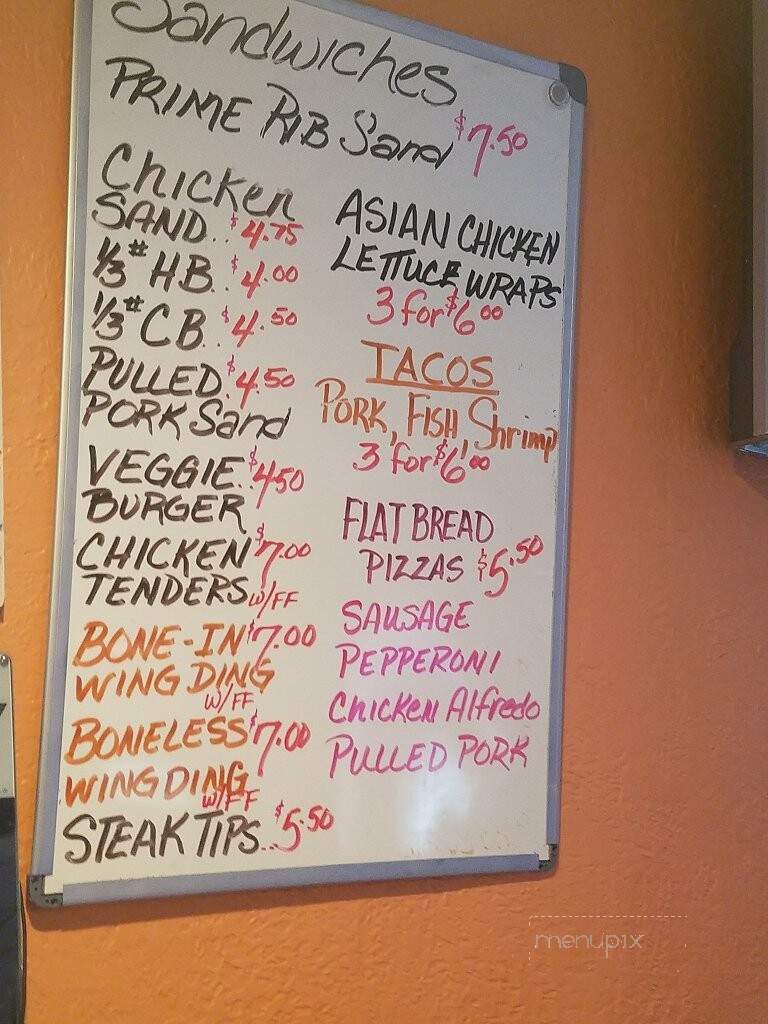 Sandwiches
PRIME RIB Sand $7.50
Chicken
SAND.. $4.75
1/3# HB.. $4.00
1/3# CB.. $4.50
PULLED. $4.50
PORK Sand
VEGGIE.. $4.50
BURGER
CHICKEN $7.00
TENDERS w/FF
BONE-IN $7.00
WING DING
w/FF
BONELESS $7.00
WING DING
w/FF
STEAK TIPS.. $5.50
ASIAN CHICKEN
LETTUCE WRAPS
3 for $6.00
TACOS
PORK, FISH, Shrimp
3 for $6.00
FLAT BREAD
PIZZAS $5.50
SAUSAGE
PEPPERONI
Chicken Alfredo
PULLED PORK
menupix